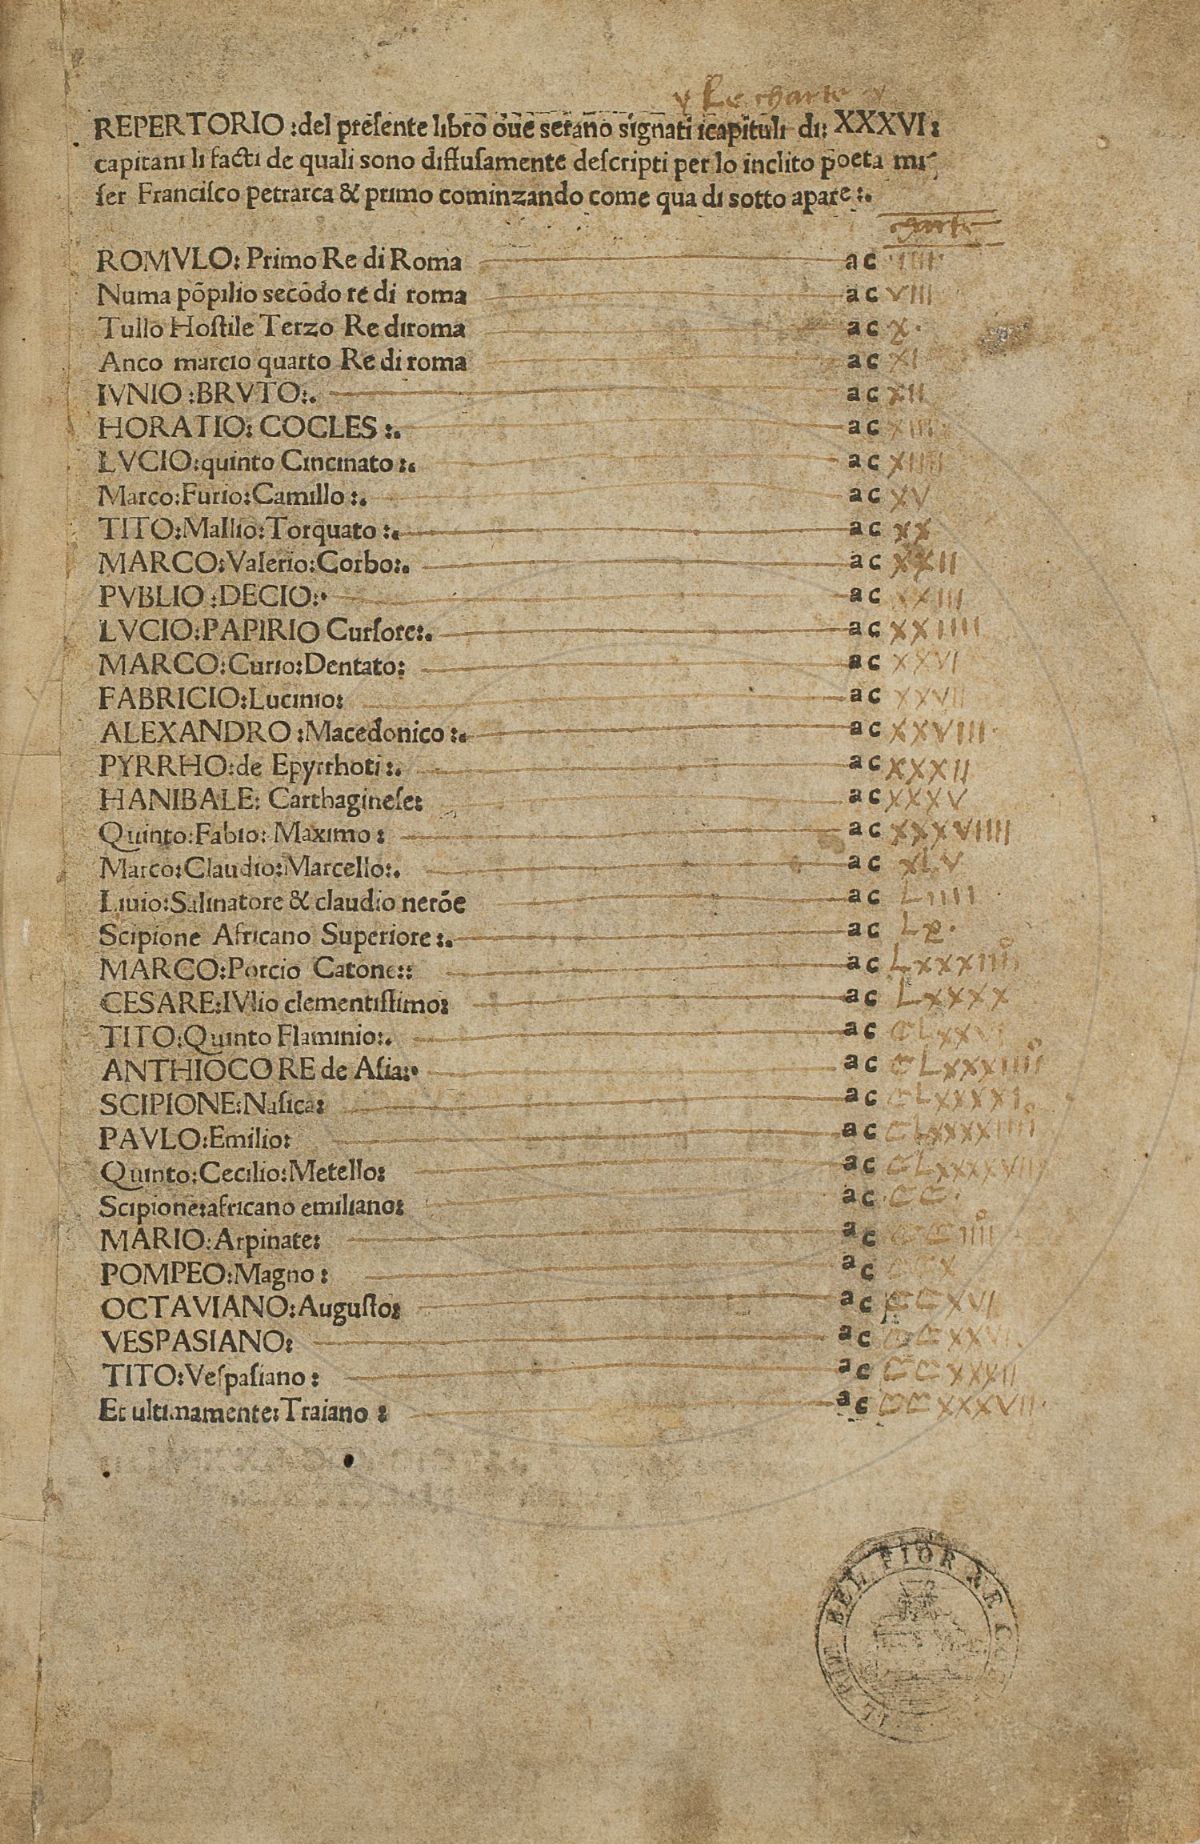 Le charte
REPERTORIO :del preſente libro oue ſerano ſignati icapituli di: XXXVI:
capitani li facti de quali sono diffuſamente deſcripti per lo inclito poeta mi
ſer Franciſco petrarca & primo cominzando come qua di sotto apare:.
charte
ROMVLO: Primo Re di Roma ac IIII
Numa põpilio secõdo re di roma ac VIII
Tullo Hoſtile Terzo Re diroma ac X.
Anco marcio quarto Re di roma ac XI
IVNIO :BRVTO:. ac XII
HORATIO: COCLES :. ac XIII
LVCIO:quinto Cincinato :. ac XIIII
Marco:Furio:Camillo :. ac XV
TITO:Mallio:Torquato :. ac XX
MARCO:Valerio:Corbo:. ac XXII
PVBLIO :DECIO:· ac XXIII
LVCIO:PAPIRIO Curſore:. ac XXIIII
MARCO:Curio:Dentato: ac XXVI
FABRICIO:Lucinio: ac XXVII
ALEXANDRO :Macedonico :. ac XXVIII
PYRRHO:de Epyrrhoti :. ac XXXII
HANIBALE: Carthagineſe: ac XXXV
Quinto:Fabio: Maximo : ac XXXVIIII
Marco:Claudio:Marcello:. ac XLV
Liuio:Salinatore & claudio nerõe ac LIIII
Scipione Africano Superiore :. ac LX.
MARCO:Porcio Catone:: ac LXXXIIII
CESARE:IVlio clementiſſimo: ac LXXXX
TITO:Quinto Flaminio:. ac CLXXV
ANTHIOCO RE de Aſia:· ac CLXXXIIII
SCIPIONE:Naſica: ac CLXXXXI
PAVLO:Emilio: ac CLXXXXIIII
Quinto:Cecilio:Metello: ac CLXXXXVII
Scipione:africano emiliano: ac CC.
MARIO:Arpinate: ac CCIIII
POMPEO:Magno : ac CCX
OCTAVIANO:Auguſto: ac CCXVI
VESPASIANO: ac CCXXVI
TITO:Veſpaſiano : ac CCXXXII
Et ultimamente:Traiano : ac CCXXXVII
IL PIV BEL FIOR NE